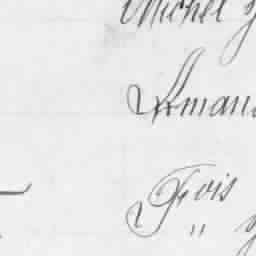 Michel
Arman
Fois
"